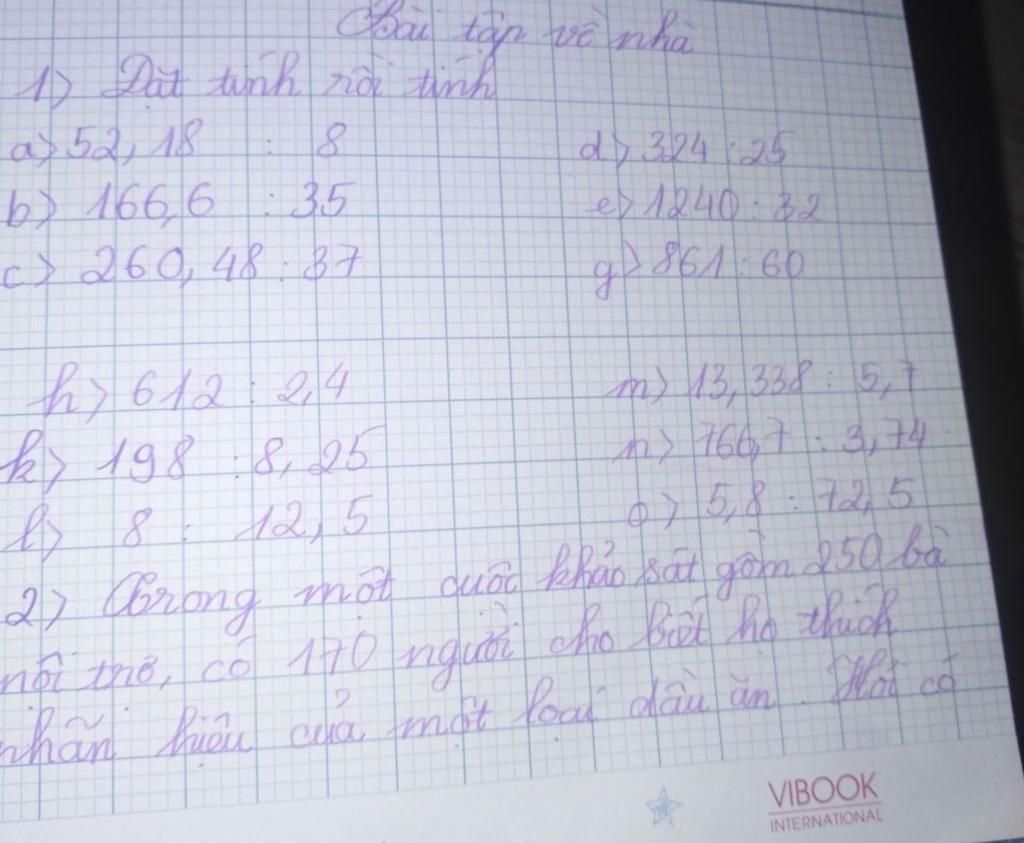 Bài tập về nhà
1) Đặt tính rồi tính
a) 52,18 : 8
d) 324 : 25
b) 166,6 : 35
e) 1240 : 32
c) 260,48 : 37
g) 861 : 60
h) 612 : 2,4
m) 13,338 : 5,7
k) 198 : 8,25
n) 766,7 : 3,74
l) 8 : 12,5
o) 5,8 : 72,5
2) Trong một cuộc khảo sát gồm 250 bà
nội trợ, có 170 người cho biết họ thích
nhãn hiệu của một loại dầu ăn. Hỏi có
VIBOOK
INTERNATIONAL